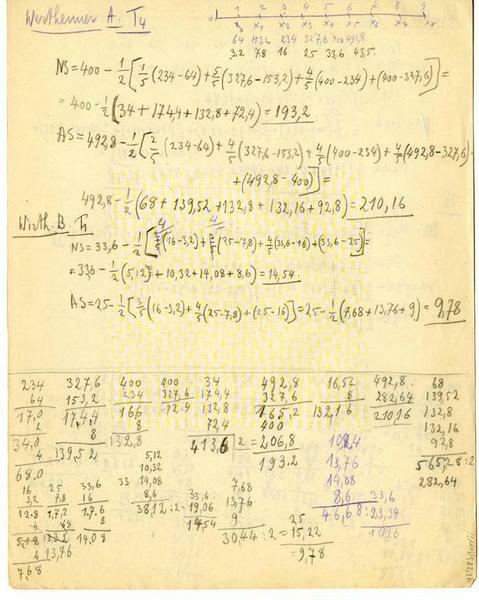 Wertheimer A. T4
0 1 2 3 4 5 6 7 8 9
x₀ x₁ x₂ x₃ x₄ x₅ x₆ x₇ x₈ x₉
64 153,2 234 327,6 400 492,8
3.2 7.8 16 25 33,6 43,5
NS = 400 - 1/2 [1/5 (234-64) + 5/5 (327,6-153,2) + 4/5 (400-234) + (400-327,6)] =
= 400 - 1/2 (34 + 174,4 + 132,8 + 72,4) = 193,2
AS = 492,8 - 1/2 [2/5 (234-64) + 4/5 (327,6-153,2) + 4/5 (400-234) + 4/5 (492,8-327,6) +
+ (492,8-400)] =
492,8 - 1/2 (68 + 139,52 + 132,8 + 132,16 + 92,8) = 210,16
Werth. B. T1
NS = 33,6 - 1/2 [(16-3,2) + (25-7,8) + 4/5 (33,6-16) + (33,6-25)] =
= 33,6 - 1/2 (5,12 + 10,32 + 14,08 + 8,6) = 14,54
AS = 25 - 1/2 [3/5 (16-3,2) + 4/5 (25-7,8) + (25-16)] = 25 - 1/2 (7,68 + 13,76 + 9) = 9,78
234 327,6 400 400 34 492,8 16,52 492,8 68
64 153,2 234 327,6 174,4 327,6 8 282,64 139,52
17,0 174,4 166 72,4 132,8 165,2 132,16 210,16 132,8
2 8 8 72,4 400 132,16
34,0 139,52 132,8 413,6 : 2 = 206,8 92,8
4 193.2 565,28 : 2
68.0 282,64
5,12 13,76
16 25 33,6 10,32 14,08
3,2 7,8 16 33 14,08 7,68 8,6 33,6
12.8 17,2 17.6 8,6 33,6 13,76 46,68 : 23,34
4 8 38,12 : 2 = 19,06 9 25
14,08 14,54 30,44 : 2 = 15,22
6 13,76 = 9,78
7,68